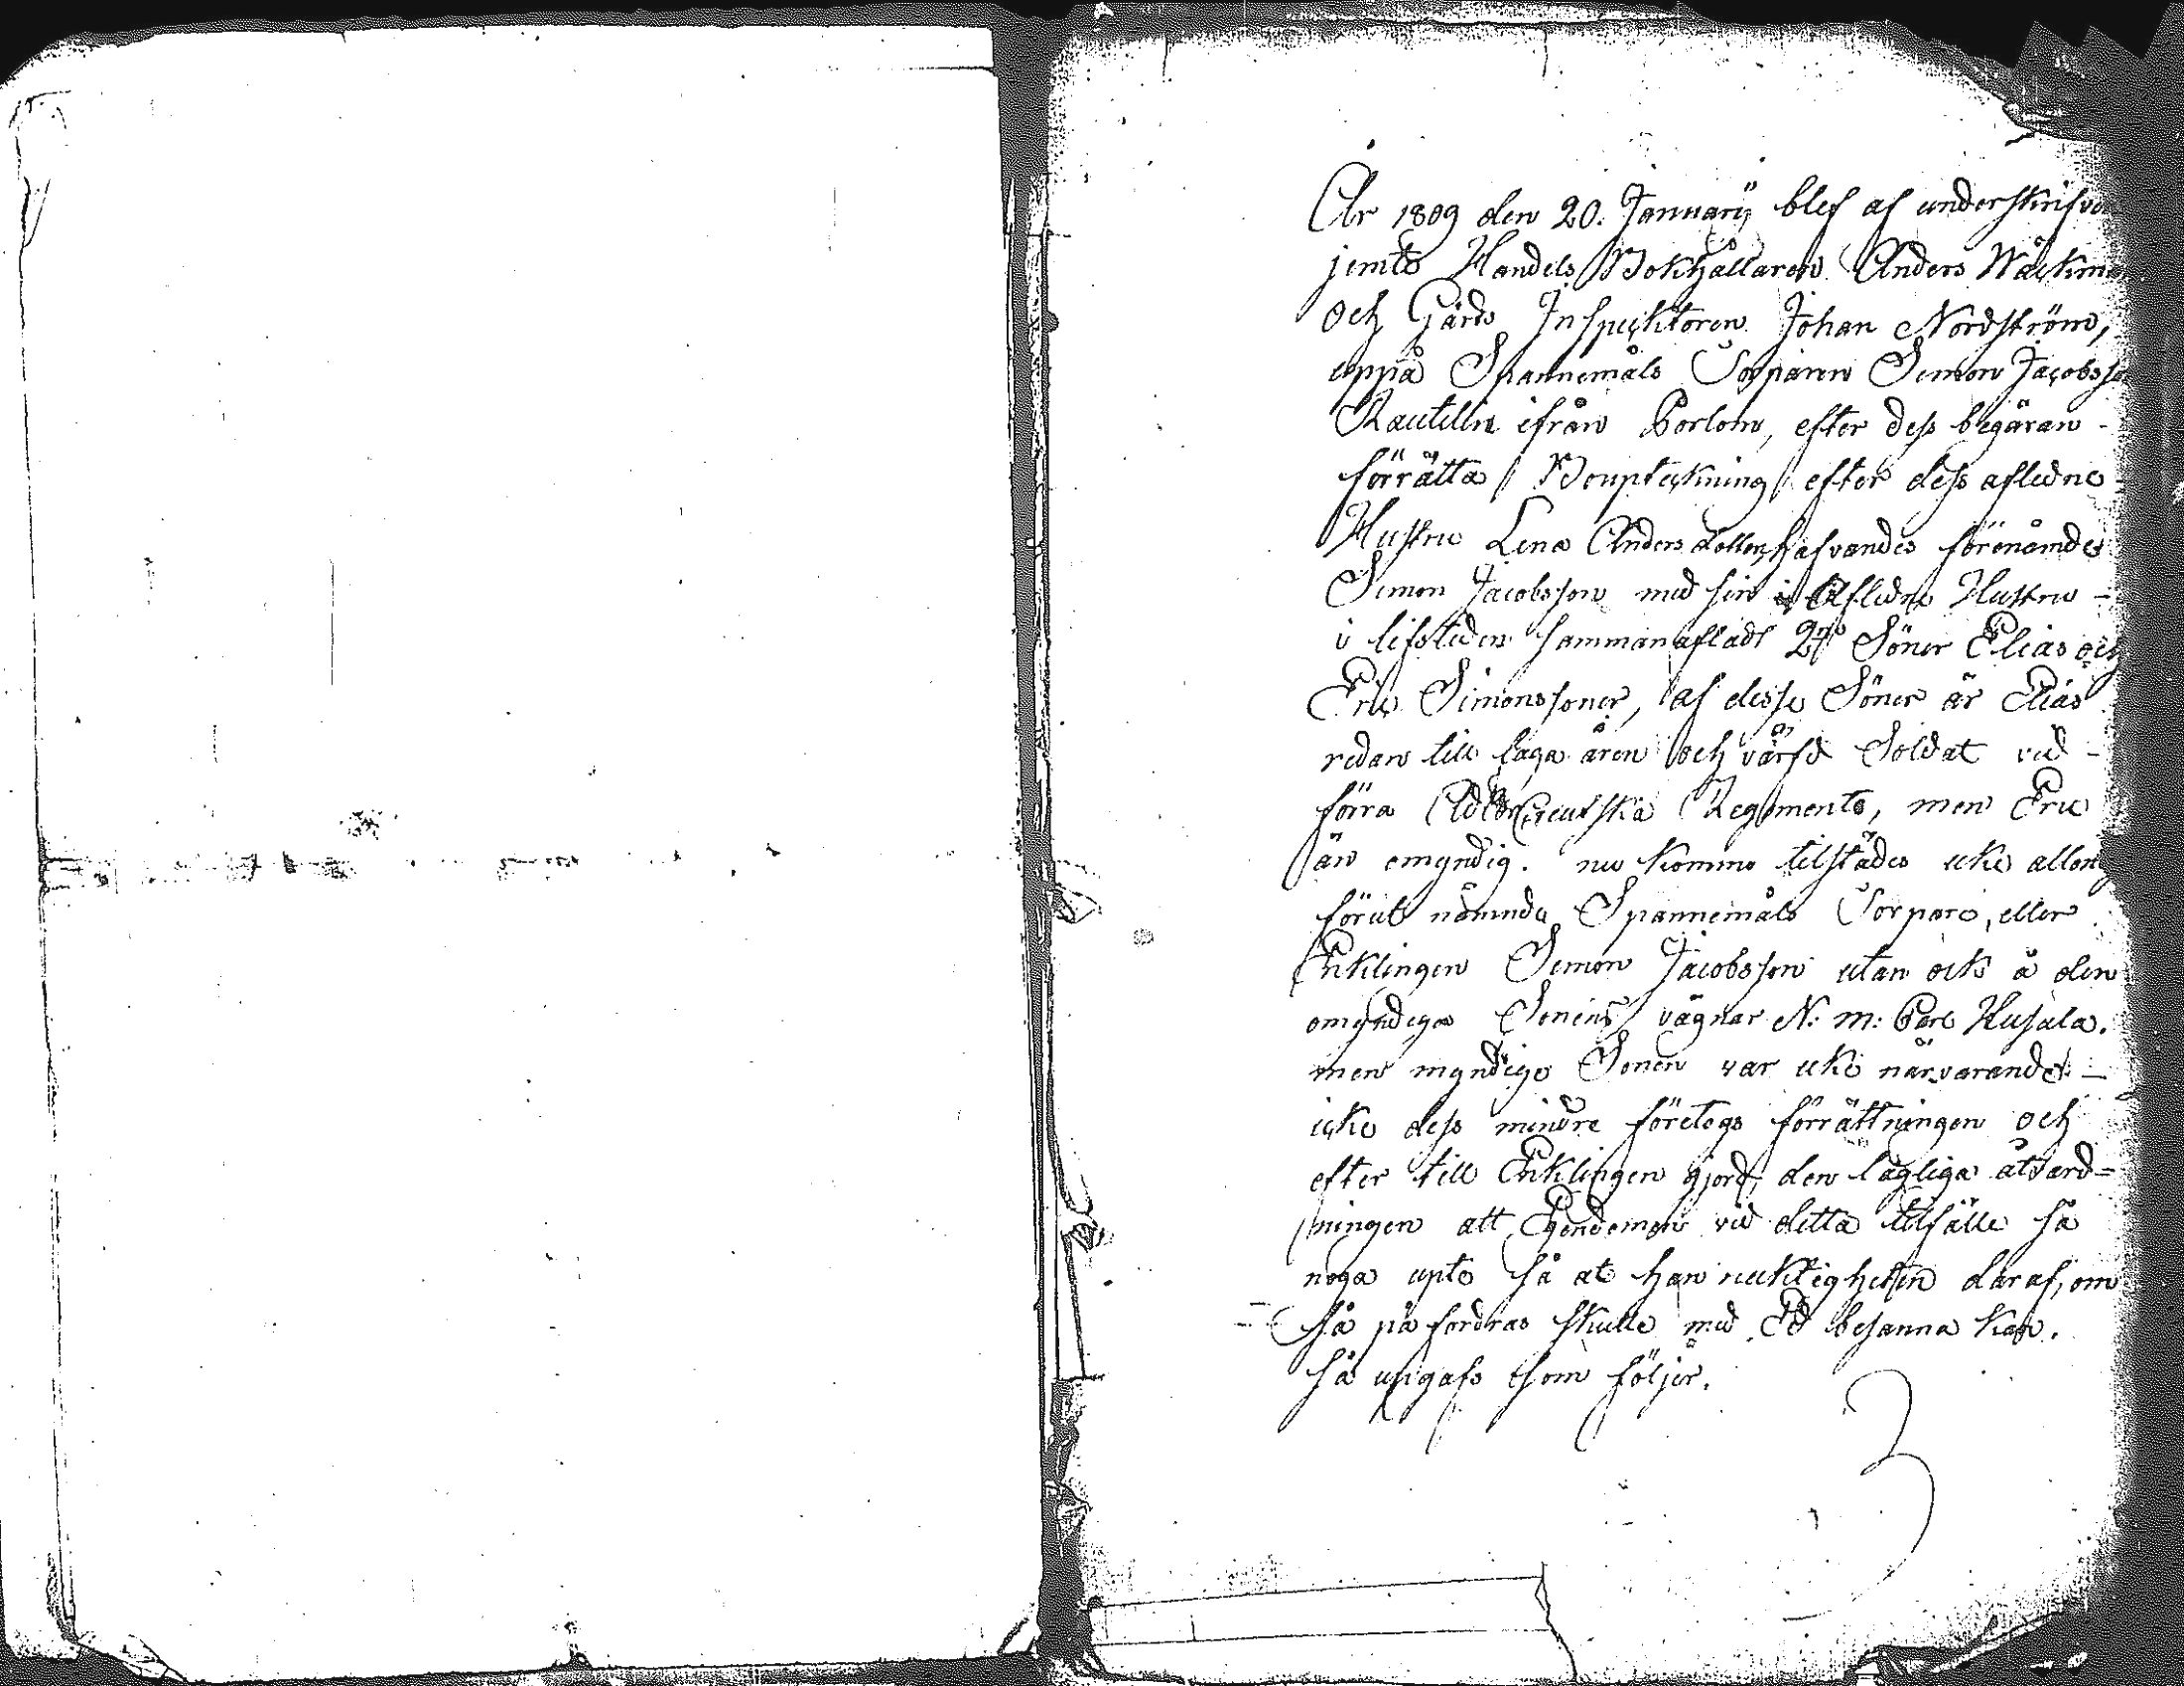 År 1809 den 20. Januarij blef af underskrifven
jemte Handels Bokhållaren Anders Wäckman
och Gårds Inspecktoren Johan Nordström,
uppå Spannemåls Torparen Simon Jacobsson
Rautelin ifrån Porlom, efter dess begäran -
förrätta Boupteckning efter dess afledne
Hustru Lena Anders dotter, hafvandes förenämde
Simon Jacobsson med sin i afledne Hustru -
i lifstiden sammanafladt 2ne Söner Elias och
Eric Simonssoner, af desse Söner är Elias
redan till laga åren och värfd Soldat vid -
förra Adlercreutzska Regemente, men Eric
än omyndig. nu kommo tilstädes icke allena
förut nämnde Spannemåls Torpare, eller
Enklingen Simon Jacobsson utan ock å den
omyndiga Sonens vägnar N: m: Carl Husala.
men myndige Sonen var icke närvarande. -
icke dess mindre företogs förrättningen och
efter till Enklingen gjord, den lagliga åtvard=
ningen att Egendomen vid detta tilfälle så
noga upte så at han ricktigheten däraf, om
så på fordras skulle med Ed besanna kan.
så upgafs som följer.
3